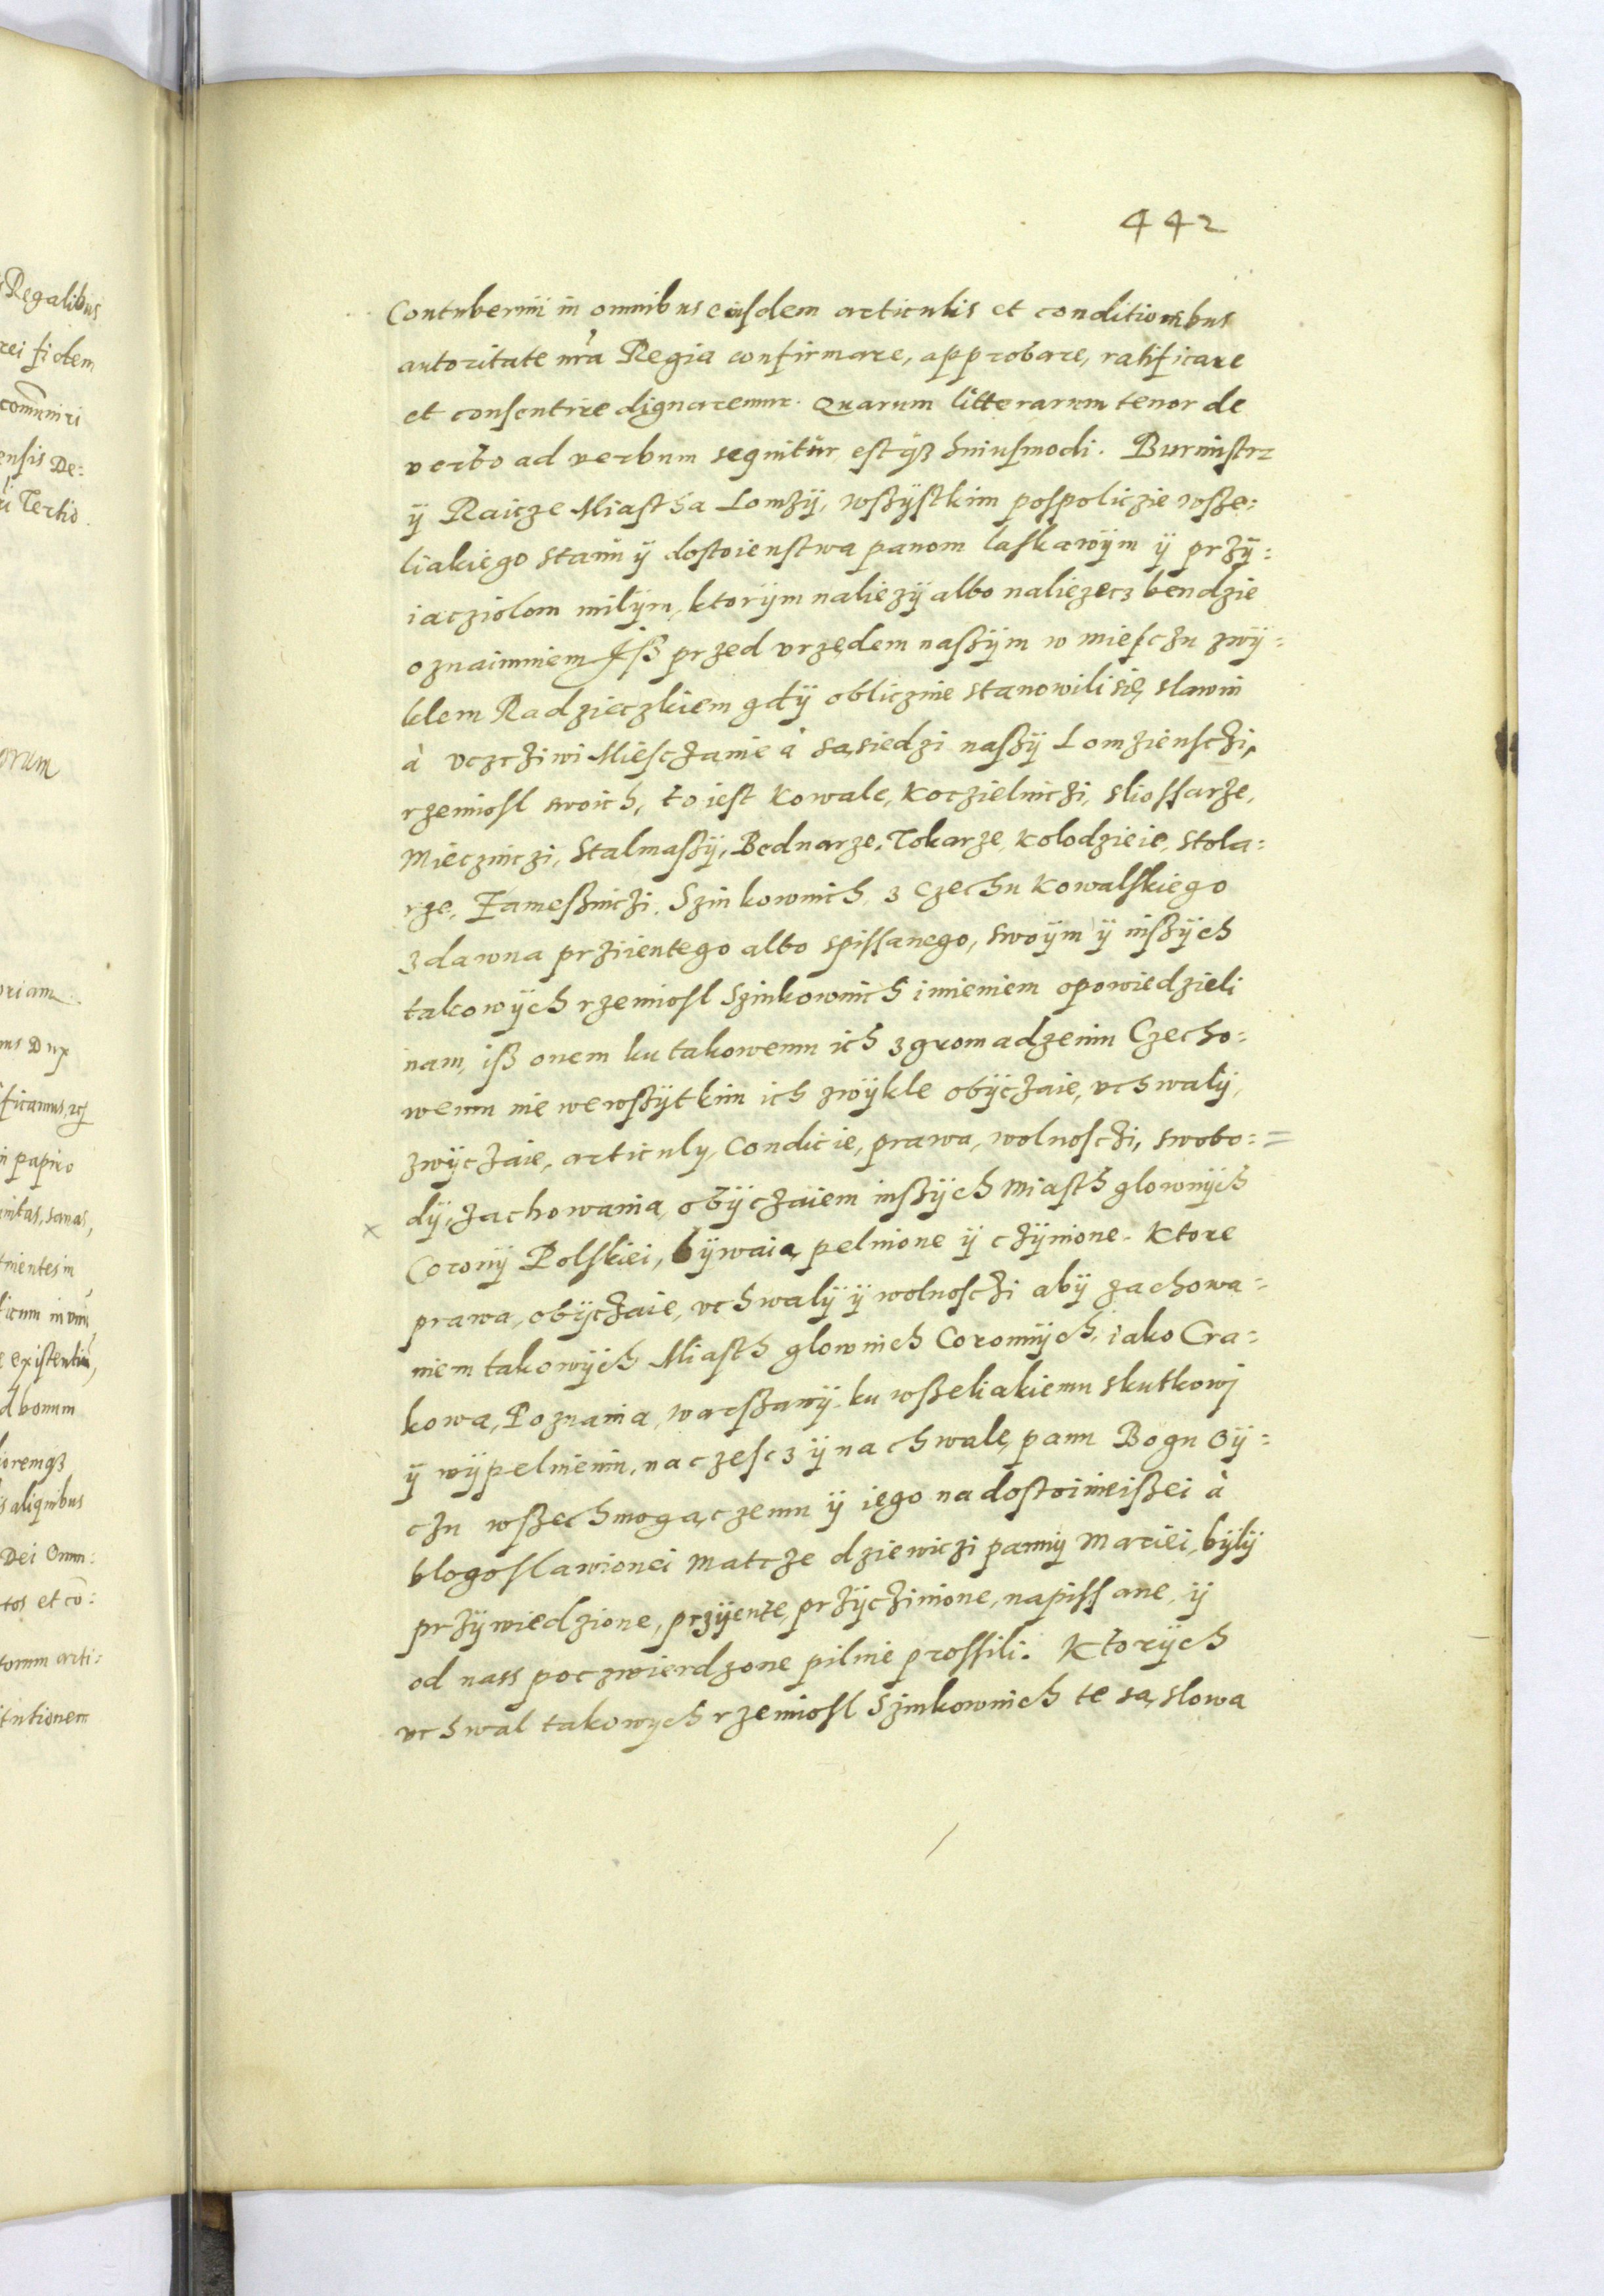 442
Contubernii in omnibus eiusdem articulis et conditionibus
autoritate nr̃a Regia confirmare, approbare, ratificare
et consentire dignaremur. Quarum litterarum tenor de
verbo ad verbum sequitur estq3 huiusmodi. Burmistrz
ÿ Raicze Miastha Lomżÿ, wszÿstkim pospoliczie wsze:
liakiego stanu ÿ dostoienstwa panom laskawÿm ÿ przÿ:
iacziolom milÿm, ktorÿm naliezÿ albo naliezecz bendzie
oznaimiem Jsz przed vrzędem naszÿm w miesczu zwÿ:
klem Radzieczkiem gdÿ obliczne stanowili się, slawni
à vczcziwi Miesczanie à sąsiedzi naszÿ Lomzienscżi,
rzemiosl swoich, to iest Kowale, Koczielniczi, sliossarze,
Miecznicżi, Stalmaszÿ, Bednarze, Tokarze, Kolodzieie, Stola:
rze, Zamesznicżi. Szinkownich, z Czechu Kowalskiego
zdawna prziientego albo spissanego, swoÿm ÿ inszÿch
takowÿch rzemiosl Szinkownich imieniem opowiedzieli
nam, isz onem ku takowemu ich zgromadzeniu Czecho:
wemu nie wewszÿtkim ich zwÿkle obÿczaie, vchwalÿ,
zwÿczaie, articuly, Condicie, prawa, wolnosczi, swobo:=
dÿ, zachowania, obÿczaiem inszÿch Miasth glownÿch
Coronÿ Polskiei, bÿwaią pelnione ÿ czÿnione. Ktore
prawa, obÿczaie, vchwalÿ ÿ wolnosczi abÿ zachowa:
niem takowÿch Miasth glownich Coronnÿch, iako Cra:
kowa, Poznania, warszawÿ, ku wszeliakiemu skutkowi
ÿ wÿpelnieniu, na czescz ÿ na chwalę panu Bogu Oÿ:
czu wszechmogączemu ÿ iego nadostoinieiszei à
blogoslawionei Matcze dziewiczi pannÿ Mariei, bÿlÿ
przÿwiedzione, przÿente, przÿczinione, napissane, ÿ
od nass poczwierdzone pilnie prossili. Ktorÿch
vchwal takowych rzemiosl Szinkownich te są slowa